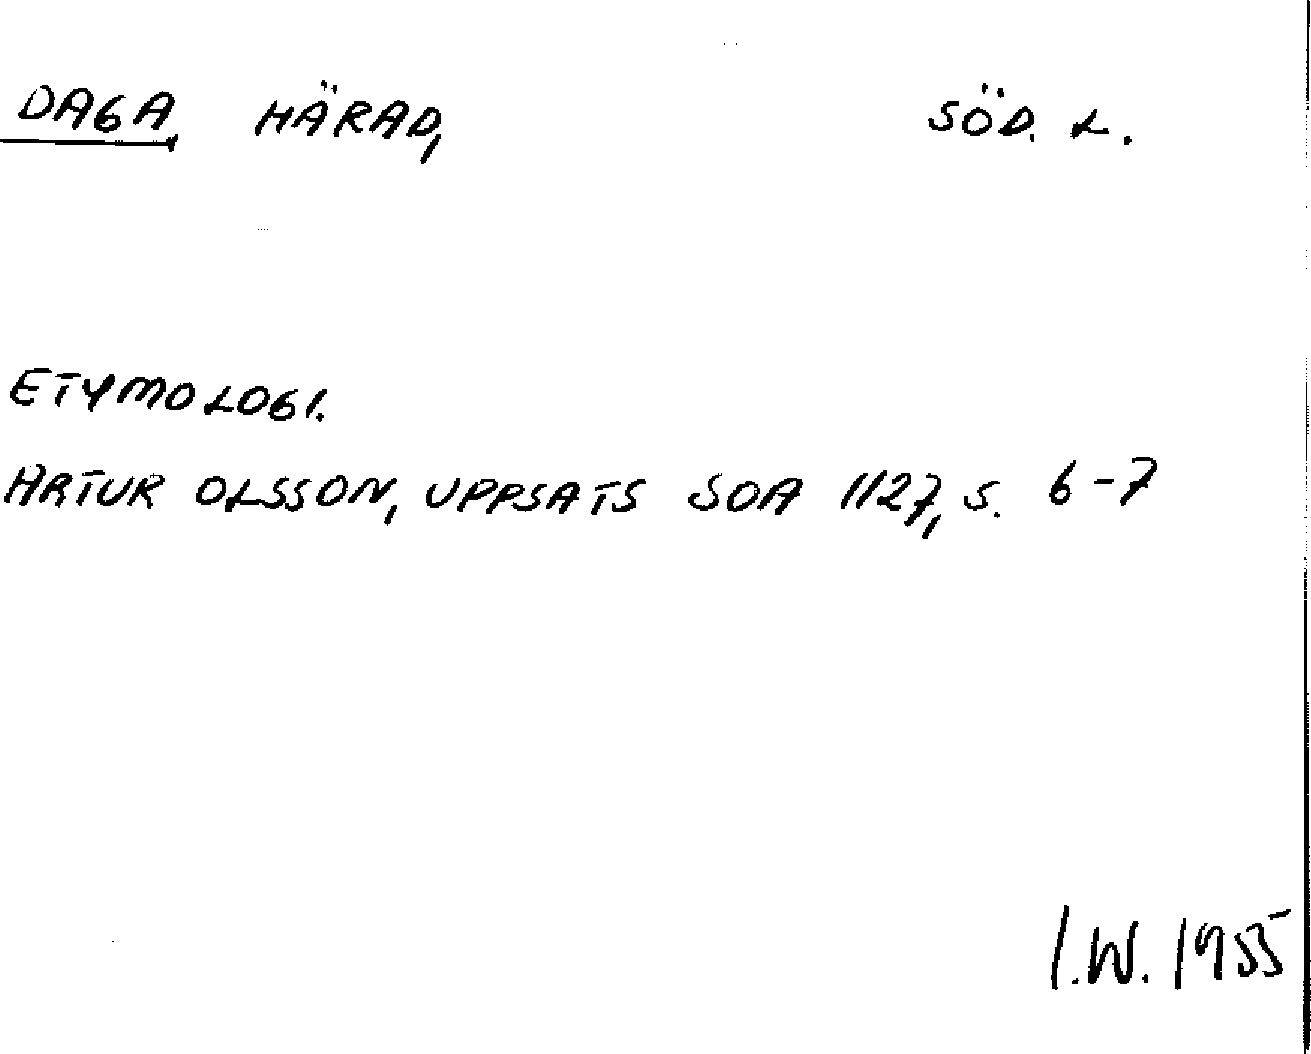 DAGA, HÄRAD, SÖD. L.
ETYMOLOGI.
ARTUR OLSSON, UPPSATS SOA 1127, S. 6-7
I.W. 1955